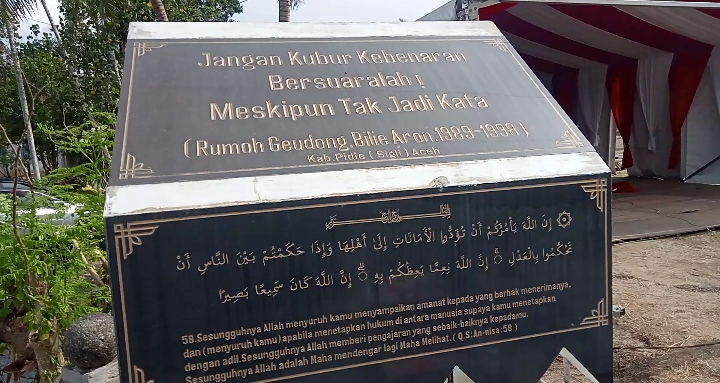 Jangan Kubur Kebenaran
Bersuaralah !
Meskipun Tak Jadi Kata
( Rumoh Geudong, Bilie Aron, 1989-1998 )
Kab. Pidie ( Sigli ) Aceh
۞ إِنَّ اللَّهَ يَأْمُرُكُمْ أَنْ تُؤَدُّوا الْأَمَانَاتِ إِلَىٰ أَهْلِهَا وَإِذَا حَكَمْتُمْ بَيْنَ النَّاسِ أَنْ
تَحْكُمُوا بِالْعَدْلِ ۚ إِنَّ اللَّهَ نِعِمَّا يَعِظُكُمْ بِهِ ۗ إِنَّ اللَّهَ كَانَ سَمِيعًا بَصِيرًا
58.Sesungguhnya Allah menyuruh kamu menyampaikan amanat kepada yang berhak menerimanya,
dan (menyuruh kamu) apabila menetapkan hukum di antara manusia supaya kamu menetapkan
dengan adil.Sesungguhnya Allah memberi pengajaran yang sebaik-baiknya kepadamu.
Sesungguhnya Allah adalah Maha mendengar lagi Maha Melihat. ( Q.S:An-nisa:58 )